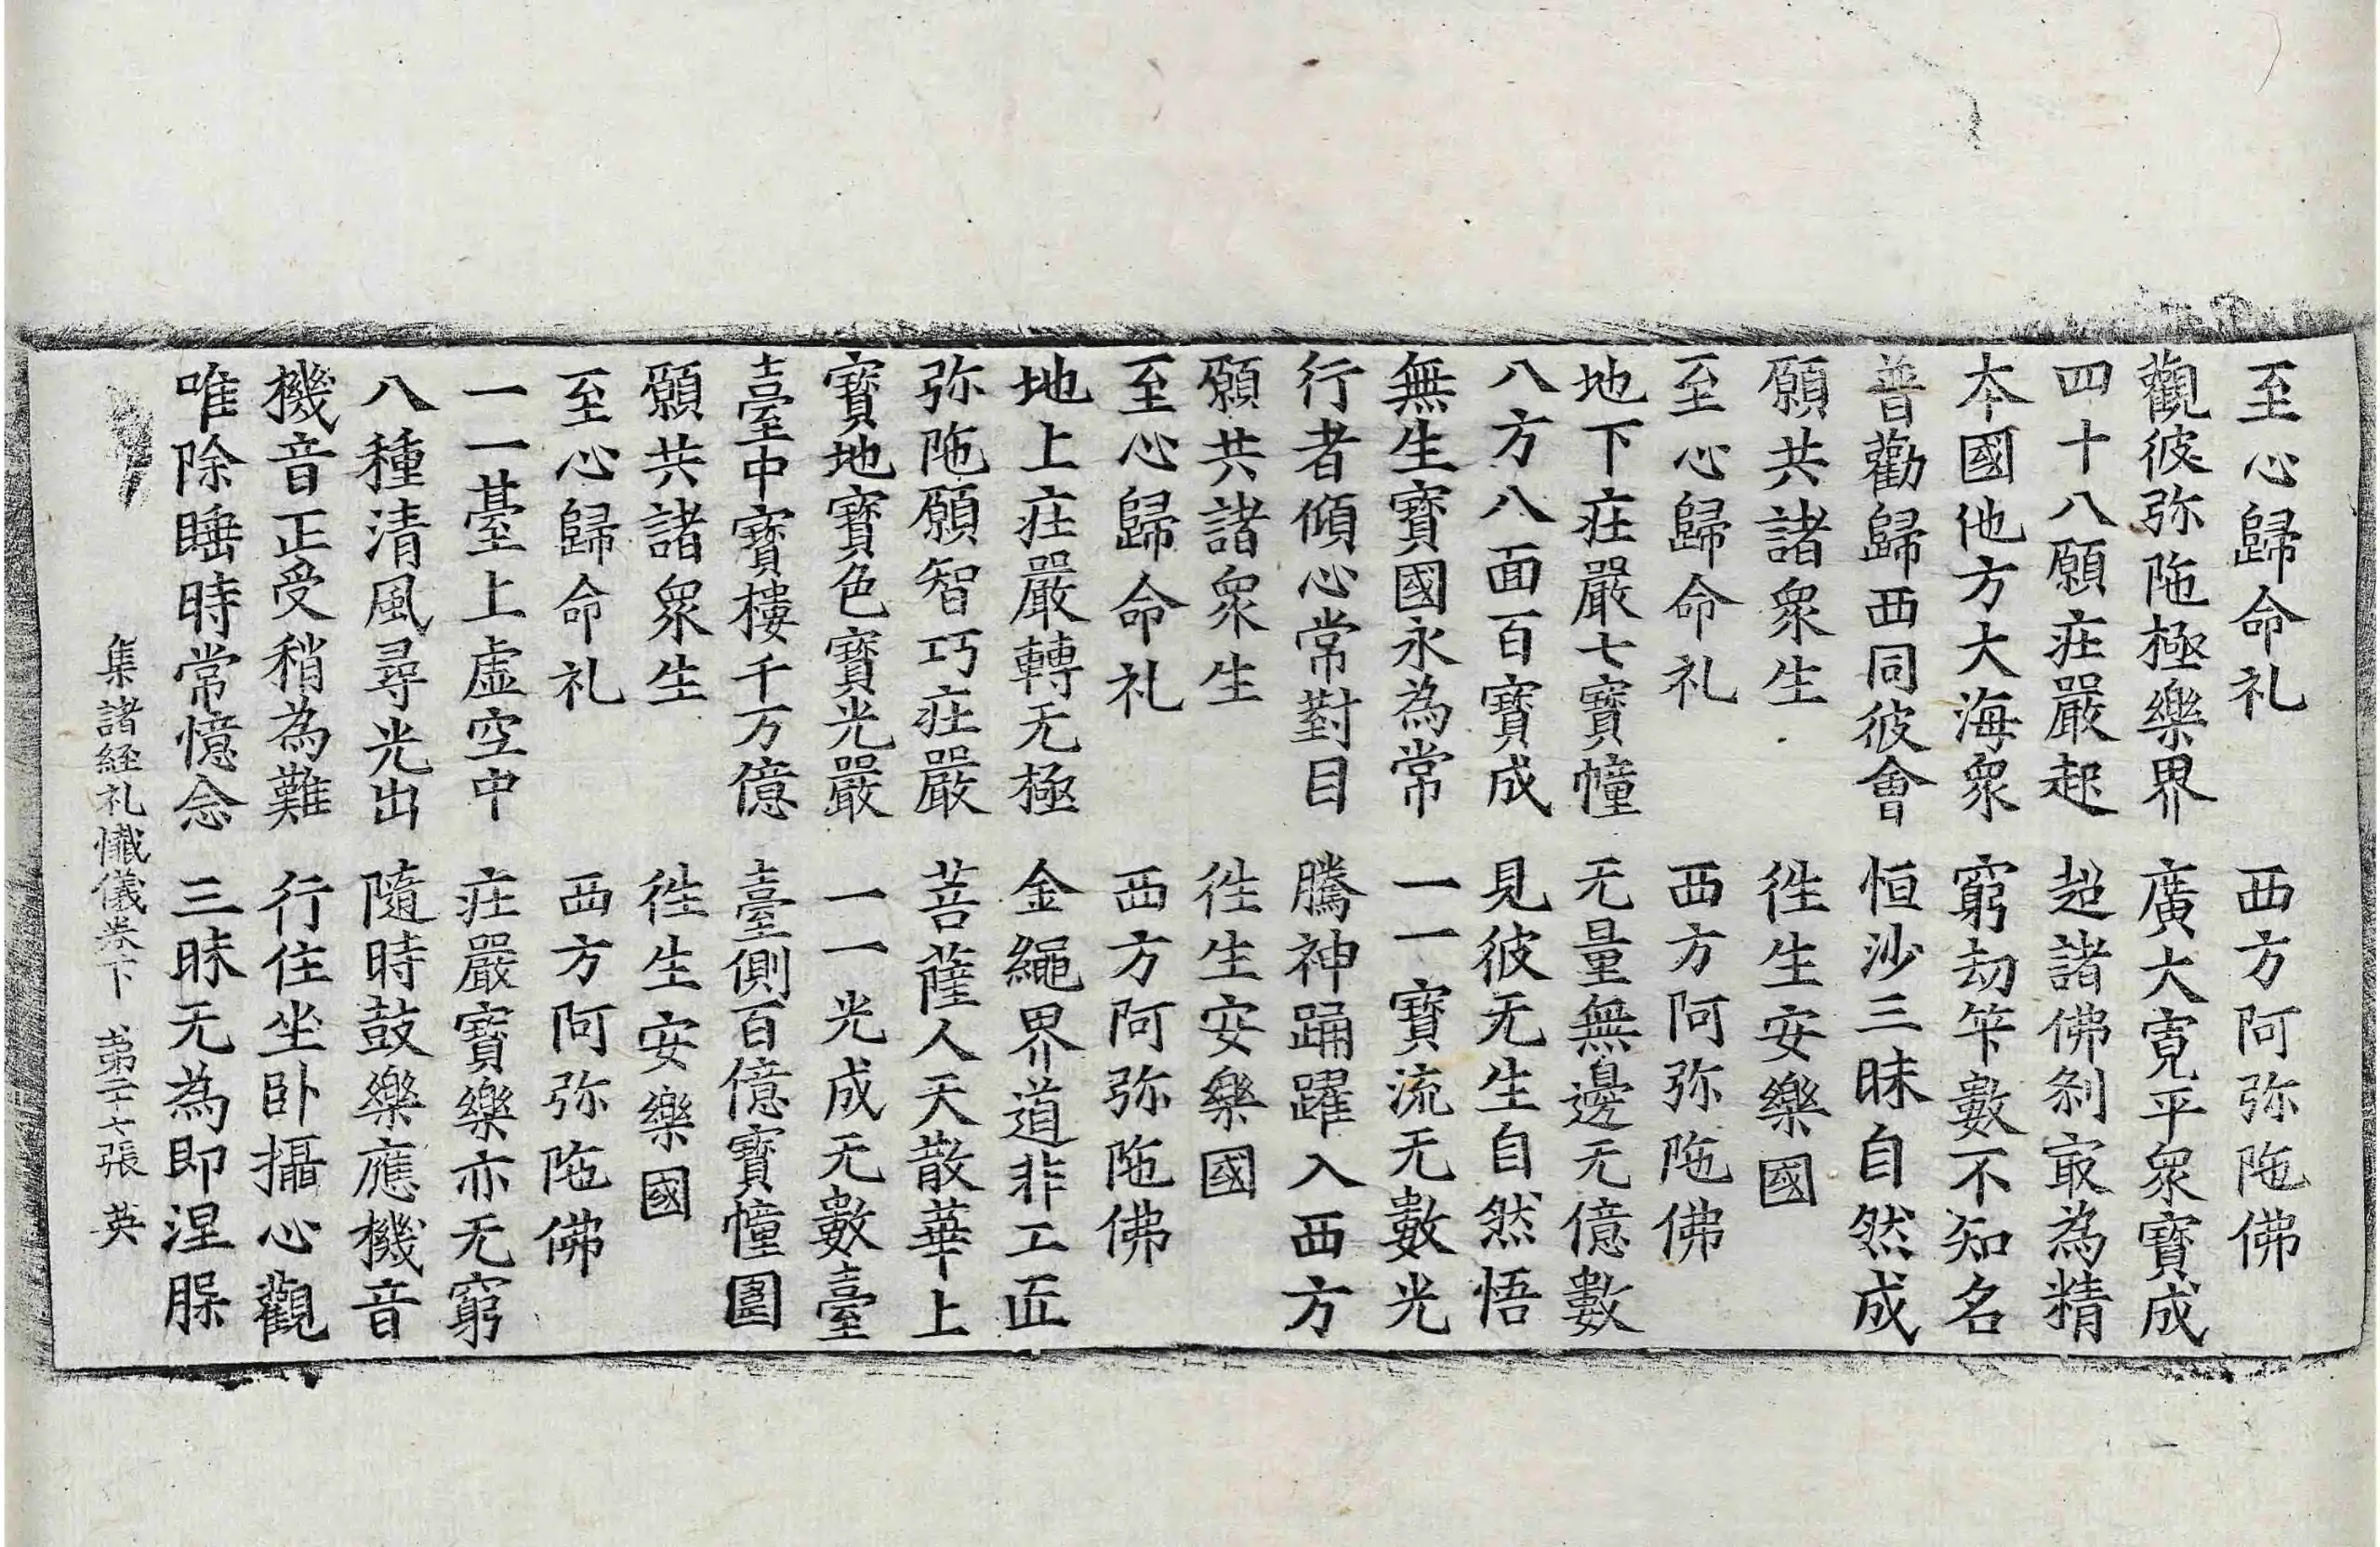 至心歸命礼　西方阿弥陁佛
觀彼弥陁極樂界　廣大寛平衆寶成
四十八願莊嚴起　超諸佛刹㝡為精
本國他方大海衆　窮劫筭數不知名
普勸歸西同彼會　恒沙三昧自然成
願共諸衆生　徃生安樂國
至心歸命礼　西方阿弥陁佛
地下莊嚴七寶幢　无量無邊无億數
八方八面百寶成　見彼无生自然悟
無生寶國永為常　一一寶流无數光
行者傾心常對目　騰神踊躍入西方
願共諸衆生　徃生安樂國
至心歸命礼　西方阿弥陁佛
地上莊嚴轉无極　金繩界道非工匠
弥陁願智巧莊嚴　菩薩人天散華上
寶地寶色寶光嚴　一一光成无數臺
臺中寶樓千万億　臺側百億寶幢圍
願共諸衆生　徃生安樂國
至心歸命礼　西方阿弥陁佛
一一臺上虛空中　莊嚴寶樂亦无窮
八種清風尋光出　隨時鼓樂應機音
機音正受稍為難　行住坐卧攝心觀
唯除睡時常憶念　三昧无為即涅脲
集諸経礼懺儀卷下　第二十七張　英